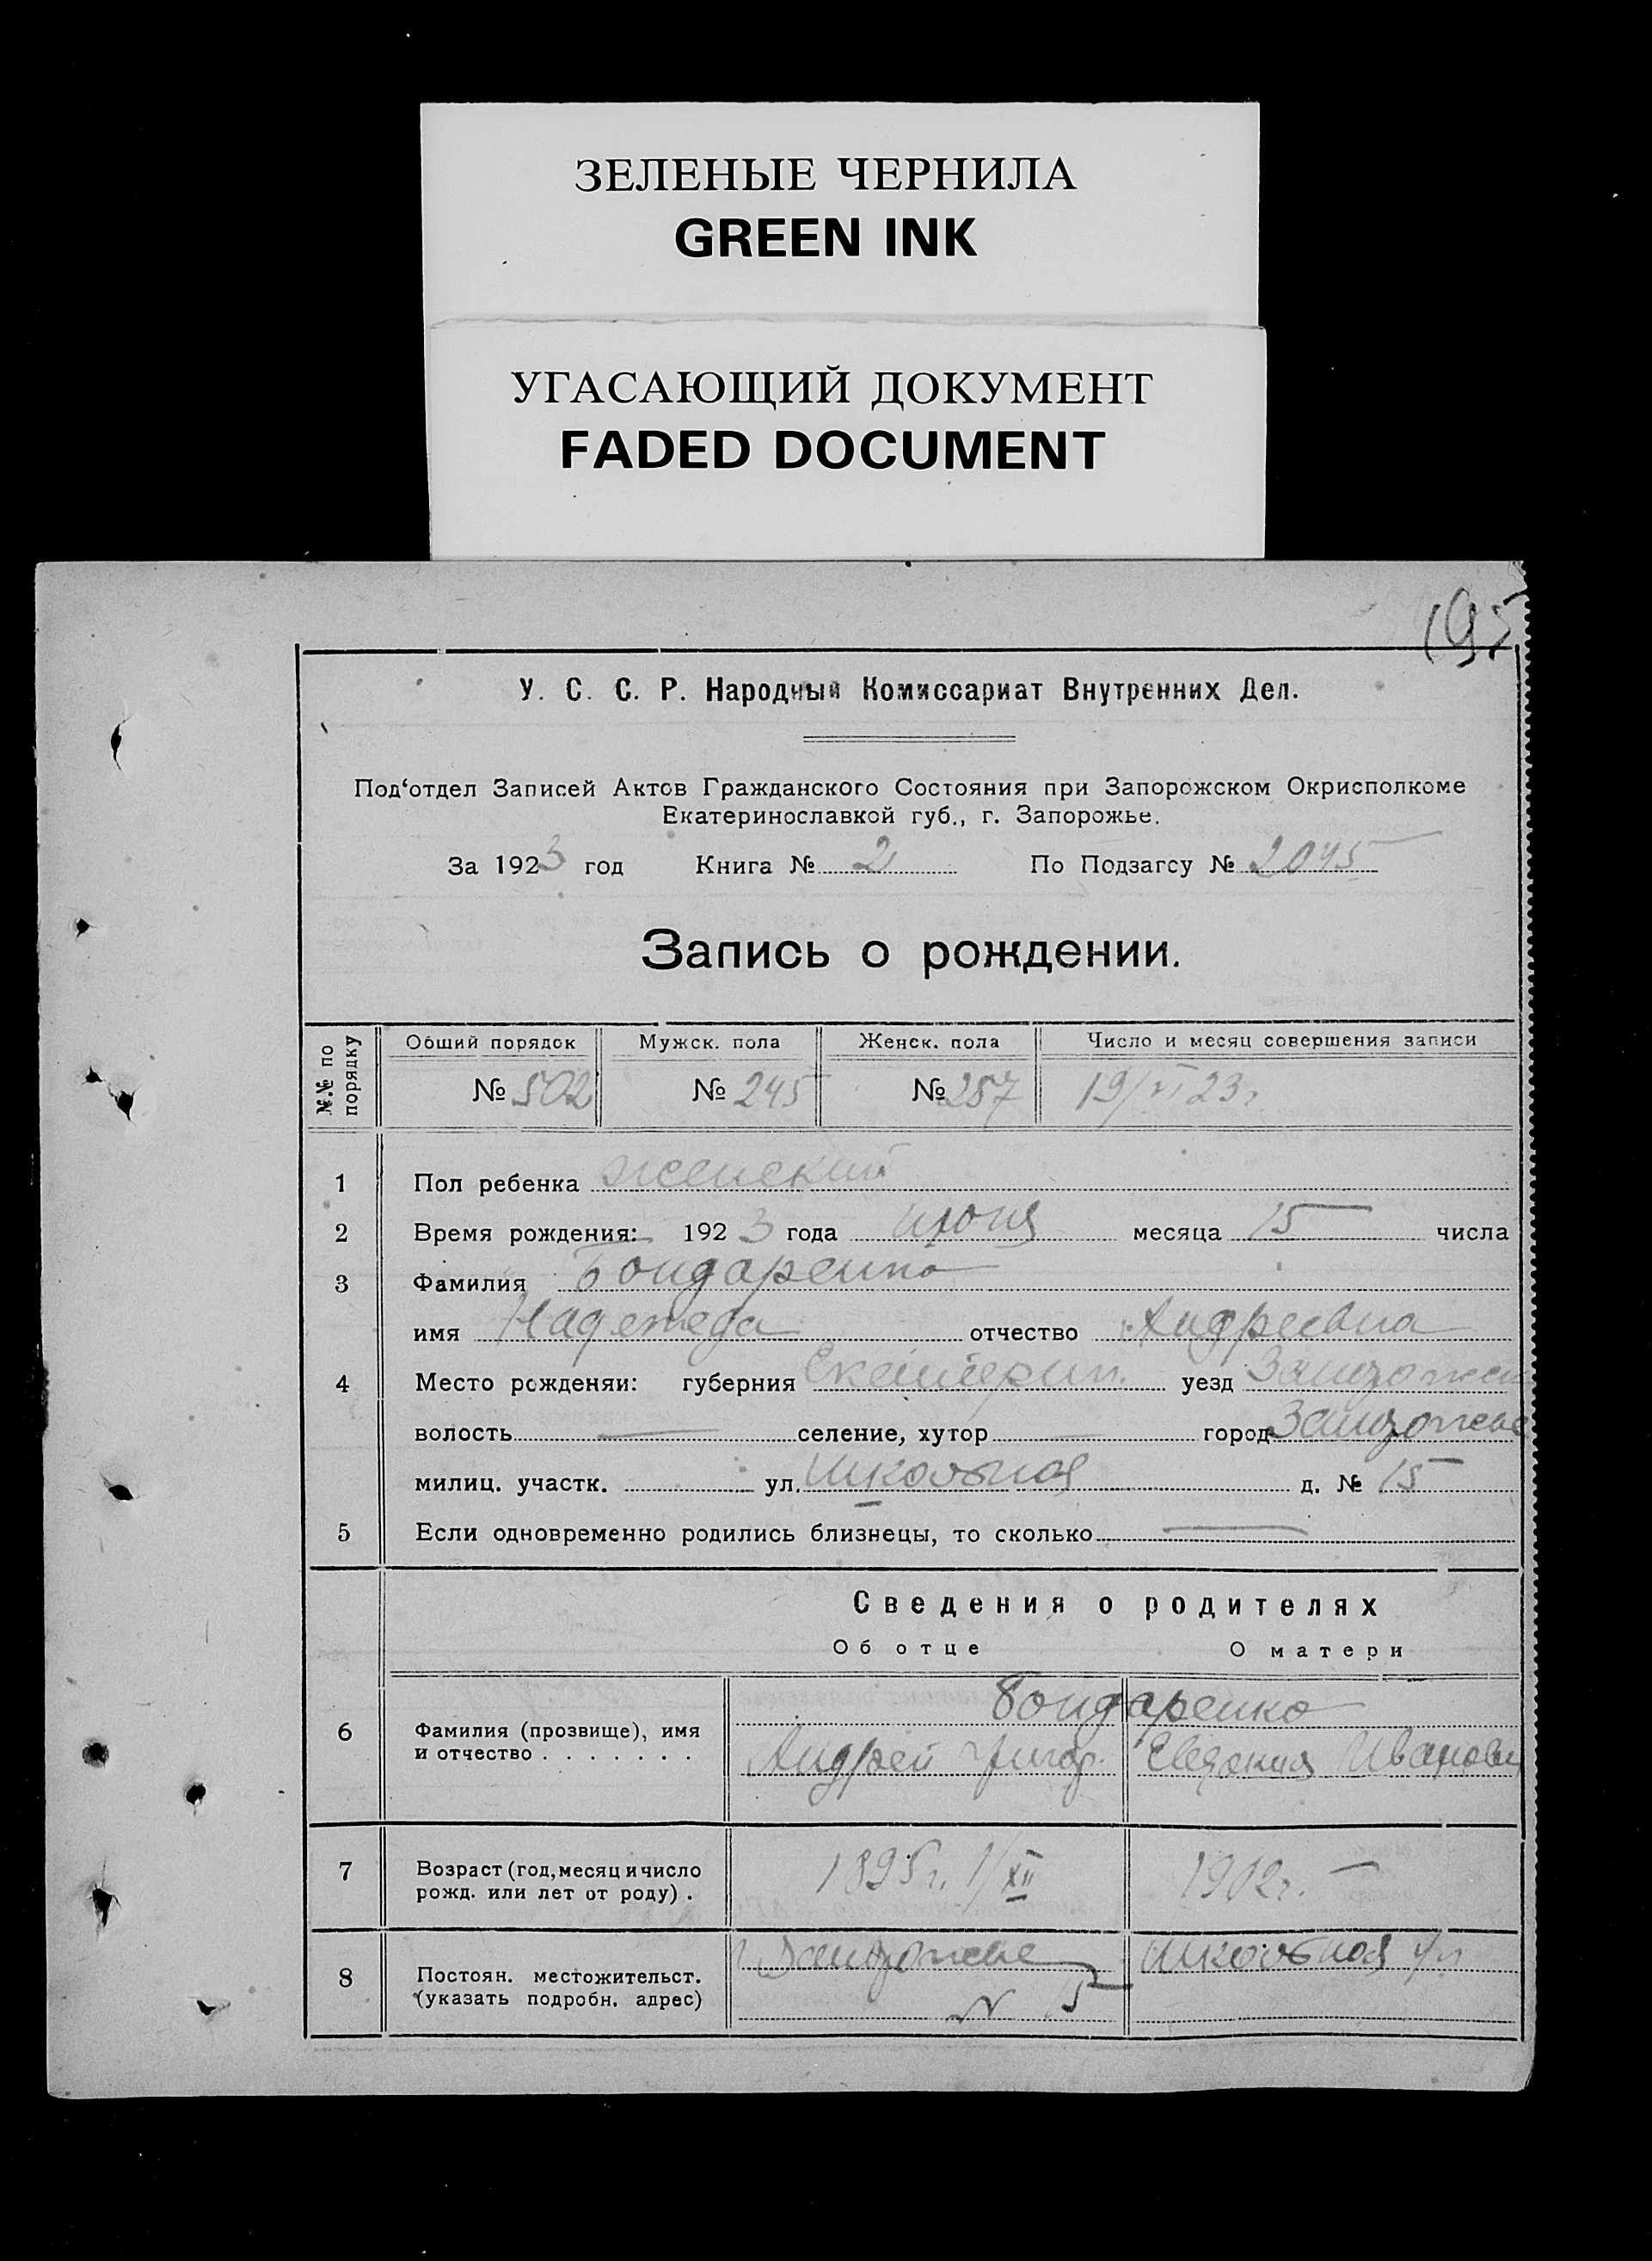 ЗЕЛЕНЫЕ ЧЕРНИЛА
GREEN INK
УГАСАЮЩИЙ ДОКУМЕНТ
FADED DOCUMENT
195
У. С. С. Р. Народный Комиссариат Внутренних Дел.
Под‘отдел Записей Актов Гражданского Состояния при Запорожском Окрисполкоме
Екатеринославкой губ., г. Запорожье.
За 1923 год Книга № 2 По Подзагсу № 2045
Запись о рождении.
№№ по порядку Общий порядок Мужск. пола Женск. пола Число и месяц совершения записи
№ 502 № 245 № 257 19/VI 23 г
1 Пол ребенка женский
2 Время рождения: 1923 года июня месяца 15 числа
3 Фамилия Бондаренко
имя Надежда отчество Андреевна
4 Место рожденяи: губерния Екатерин. уезд Запорожск
волость — селение, хутор — город Запорожье
милиц. участк. ул. Школьная д. № 15
5 Если одновременно родились близнецы, то сколько —
Сведения о родителях
Об отце О матери
Бондаренко
6 Фамилия (прозвище), имя и отчество . . . . . . . Андрей Григор. Евдокия Ивановн
7 Возраст (год, месяц и число рожд. или лет от роду) . 1895 г. 1/XII 1902 г. —
8 Постоян. местожительст. (указать подробн. адрес) г Запорожье Школьная ул
N 15